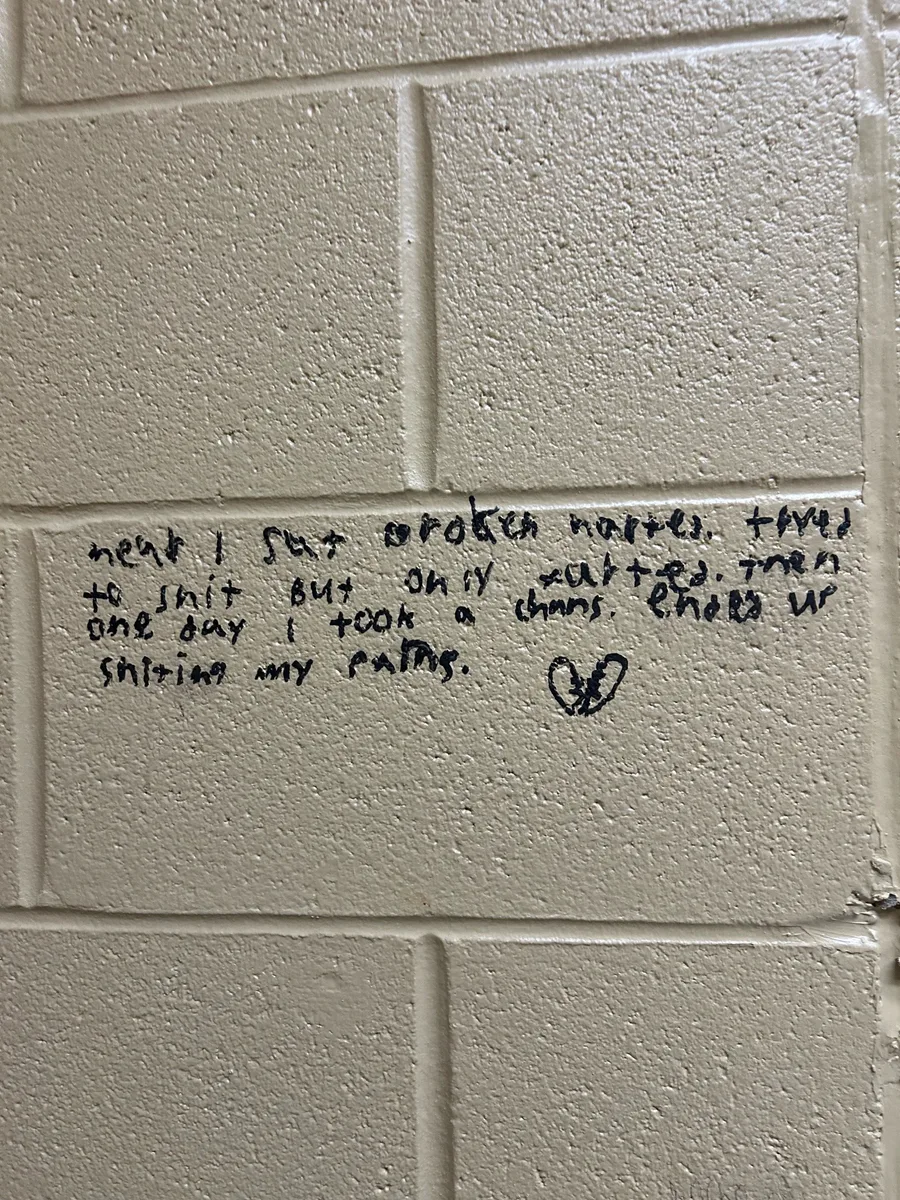 hear I sat broken harted. tryed
to shit but only farted. Then
one day I took a chans. Ended up
shiting my pants.